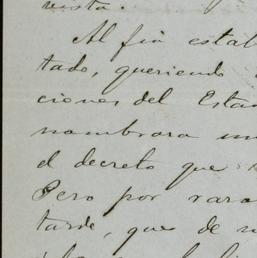 vista.
Al fin estab
tado, queriendo
ciones del Esta
nombrara un
el decreto que
Pero por rara
tarde, que de